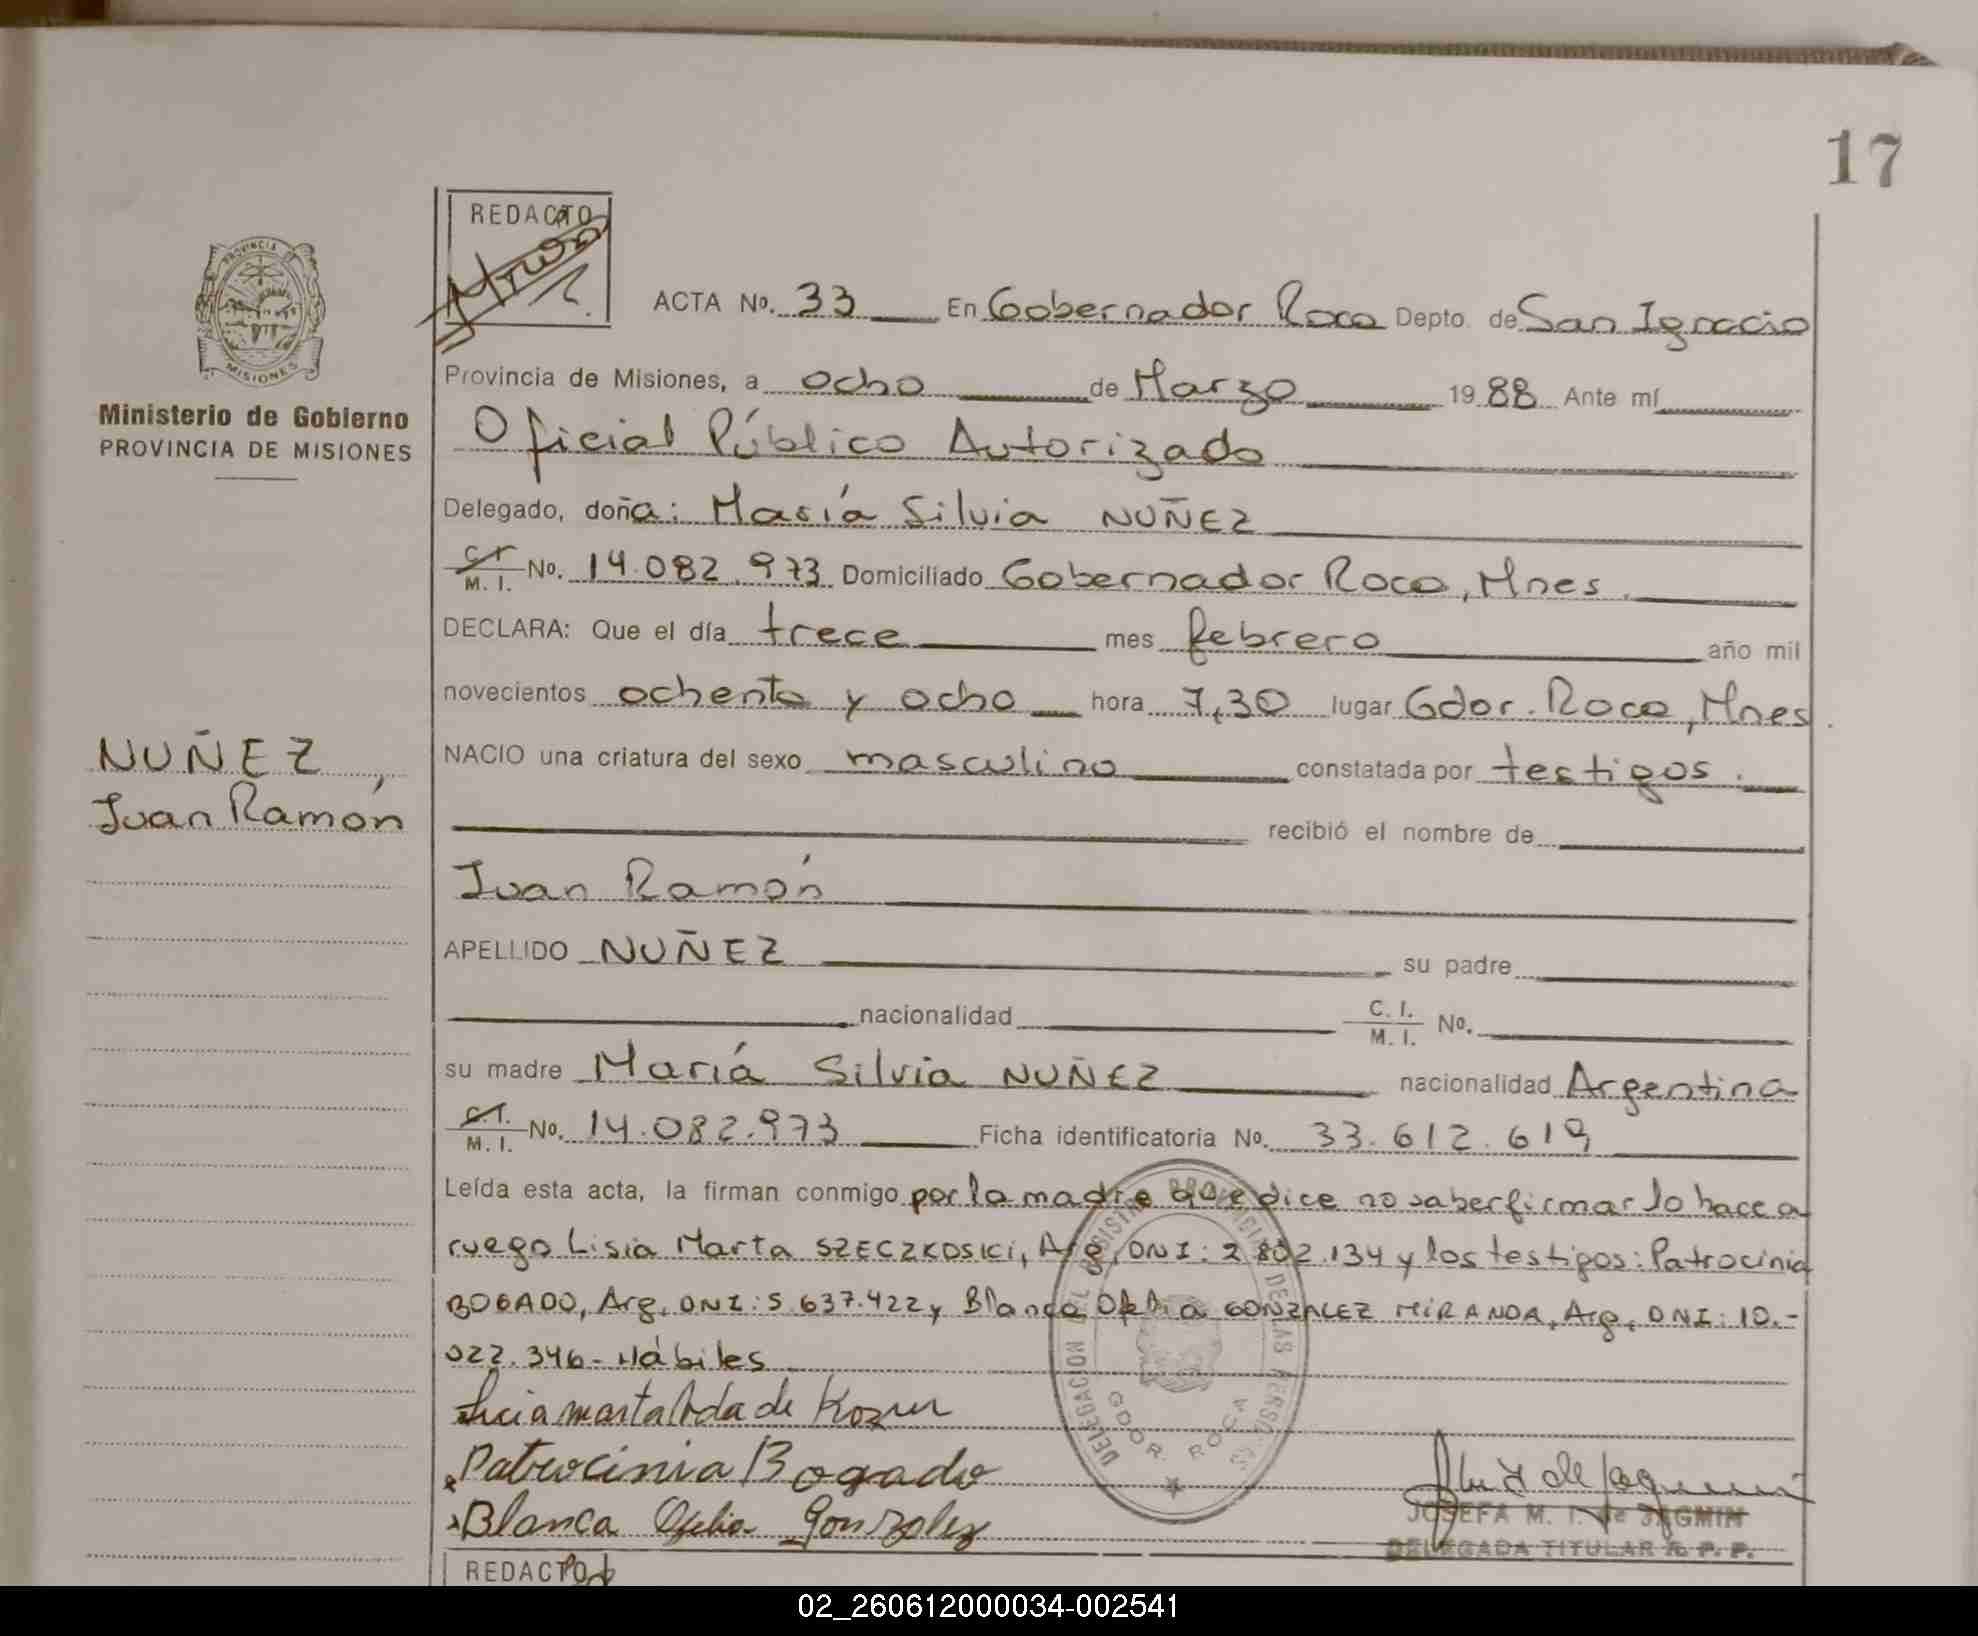 17
REDACTO
PROVINCIA DE
MISIONES
Ministerio de Gobierno
PROVINCIA DE MISIONES
NUÑEZ,
Juan Ramón
ACTA No. 33 En Gobernador Roca Depto. de San Ignacio
Provincia de Misiones, a ocho de Marzo 1988 Ante mí
Oficial Público Autorizado
Delegado, doña: María Silvia NUÑEZ
C.I. M. I. No. 14.082.973 Domiciliado Gobernador Roca, Mnes.
DECLARA: Que el día trece mes febrero año mil
novecientos ochenta y ocho hora 7,30 lugar Gdor. Roca, Mnes.
NACIO una criatura del sexo masculino constatada por testigos.
recibió el nombre de
Juan Ramón
APELLIDO NUÑEZ su padre
nacionalidad C. I. M. I. No.
su madre María Silvia NUÑEZ nacionalidad Argentina
C.I. M. I. No. 14.082.973 Ficha identificatoria No. 33.612.619
Leída esta acta, la firman conmigo por la madre que dice no saber firmar lo hace a
ruego Lisia Marta SZECZKOSKI, Arg, DNI: 2 802.134 y los testigos: Patrocinia
BOGADO, Arg, DNI: 5.637.422 y Blanca Ofelia GONZALEZ MIRANDA, Arg, DNI: 10.-
022.346- Hábiles
Patrocinia Bogado
Blanca Ofelia Gonzalez
DELEGACION DEL REGISTRO PROVINCIAL DE LAS PERSONAS
GDOR. ROCA
JOSEFA M. I. de JAGMIN
DELEGADA TITULAR R. P. P.
REDACTO
02_260612000034-002541